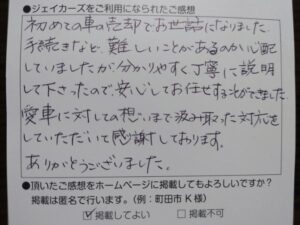 ●ジェイカーズをご利用になられたご感想
初めての車の売却でお世話になりました。
手続きなど、難しいことがあるのか心配
していましたが、分かりやすく丁寧に説明
して下さったので、安心してお任せすることができました。
愛車に対しての想いまで汲み取った対応を
していただいて感謝しております。
ありがとうございました。
●頂いたご感想をホームページに掲載してもよろしいですか?
掲載は匿名で行います。(例:町田市 K様)
☑掲載してよい □掲載不可